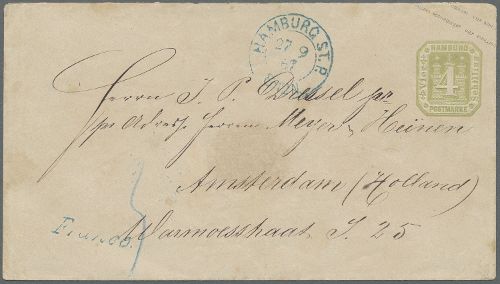 HAMBURG. ST. P.
27 9
67
HAMBURG
4
POSTMARKE
Herrn J. P. Dressel pr
pr Adresse Herren Meyer & Heinen
Amsterdam (Holland)
Franco. Warmoesstraat. J. 25